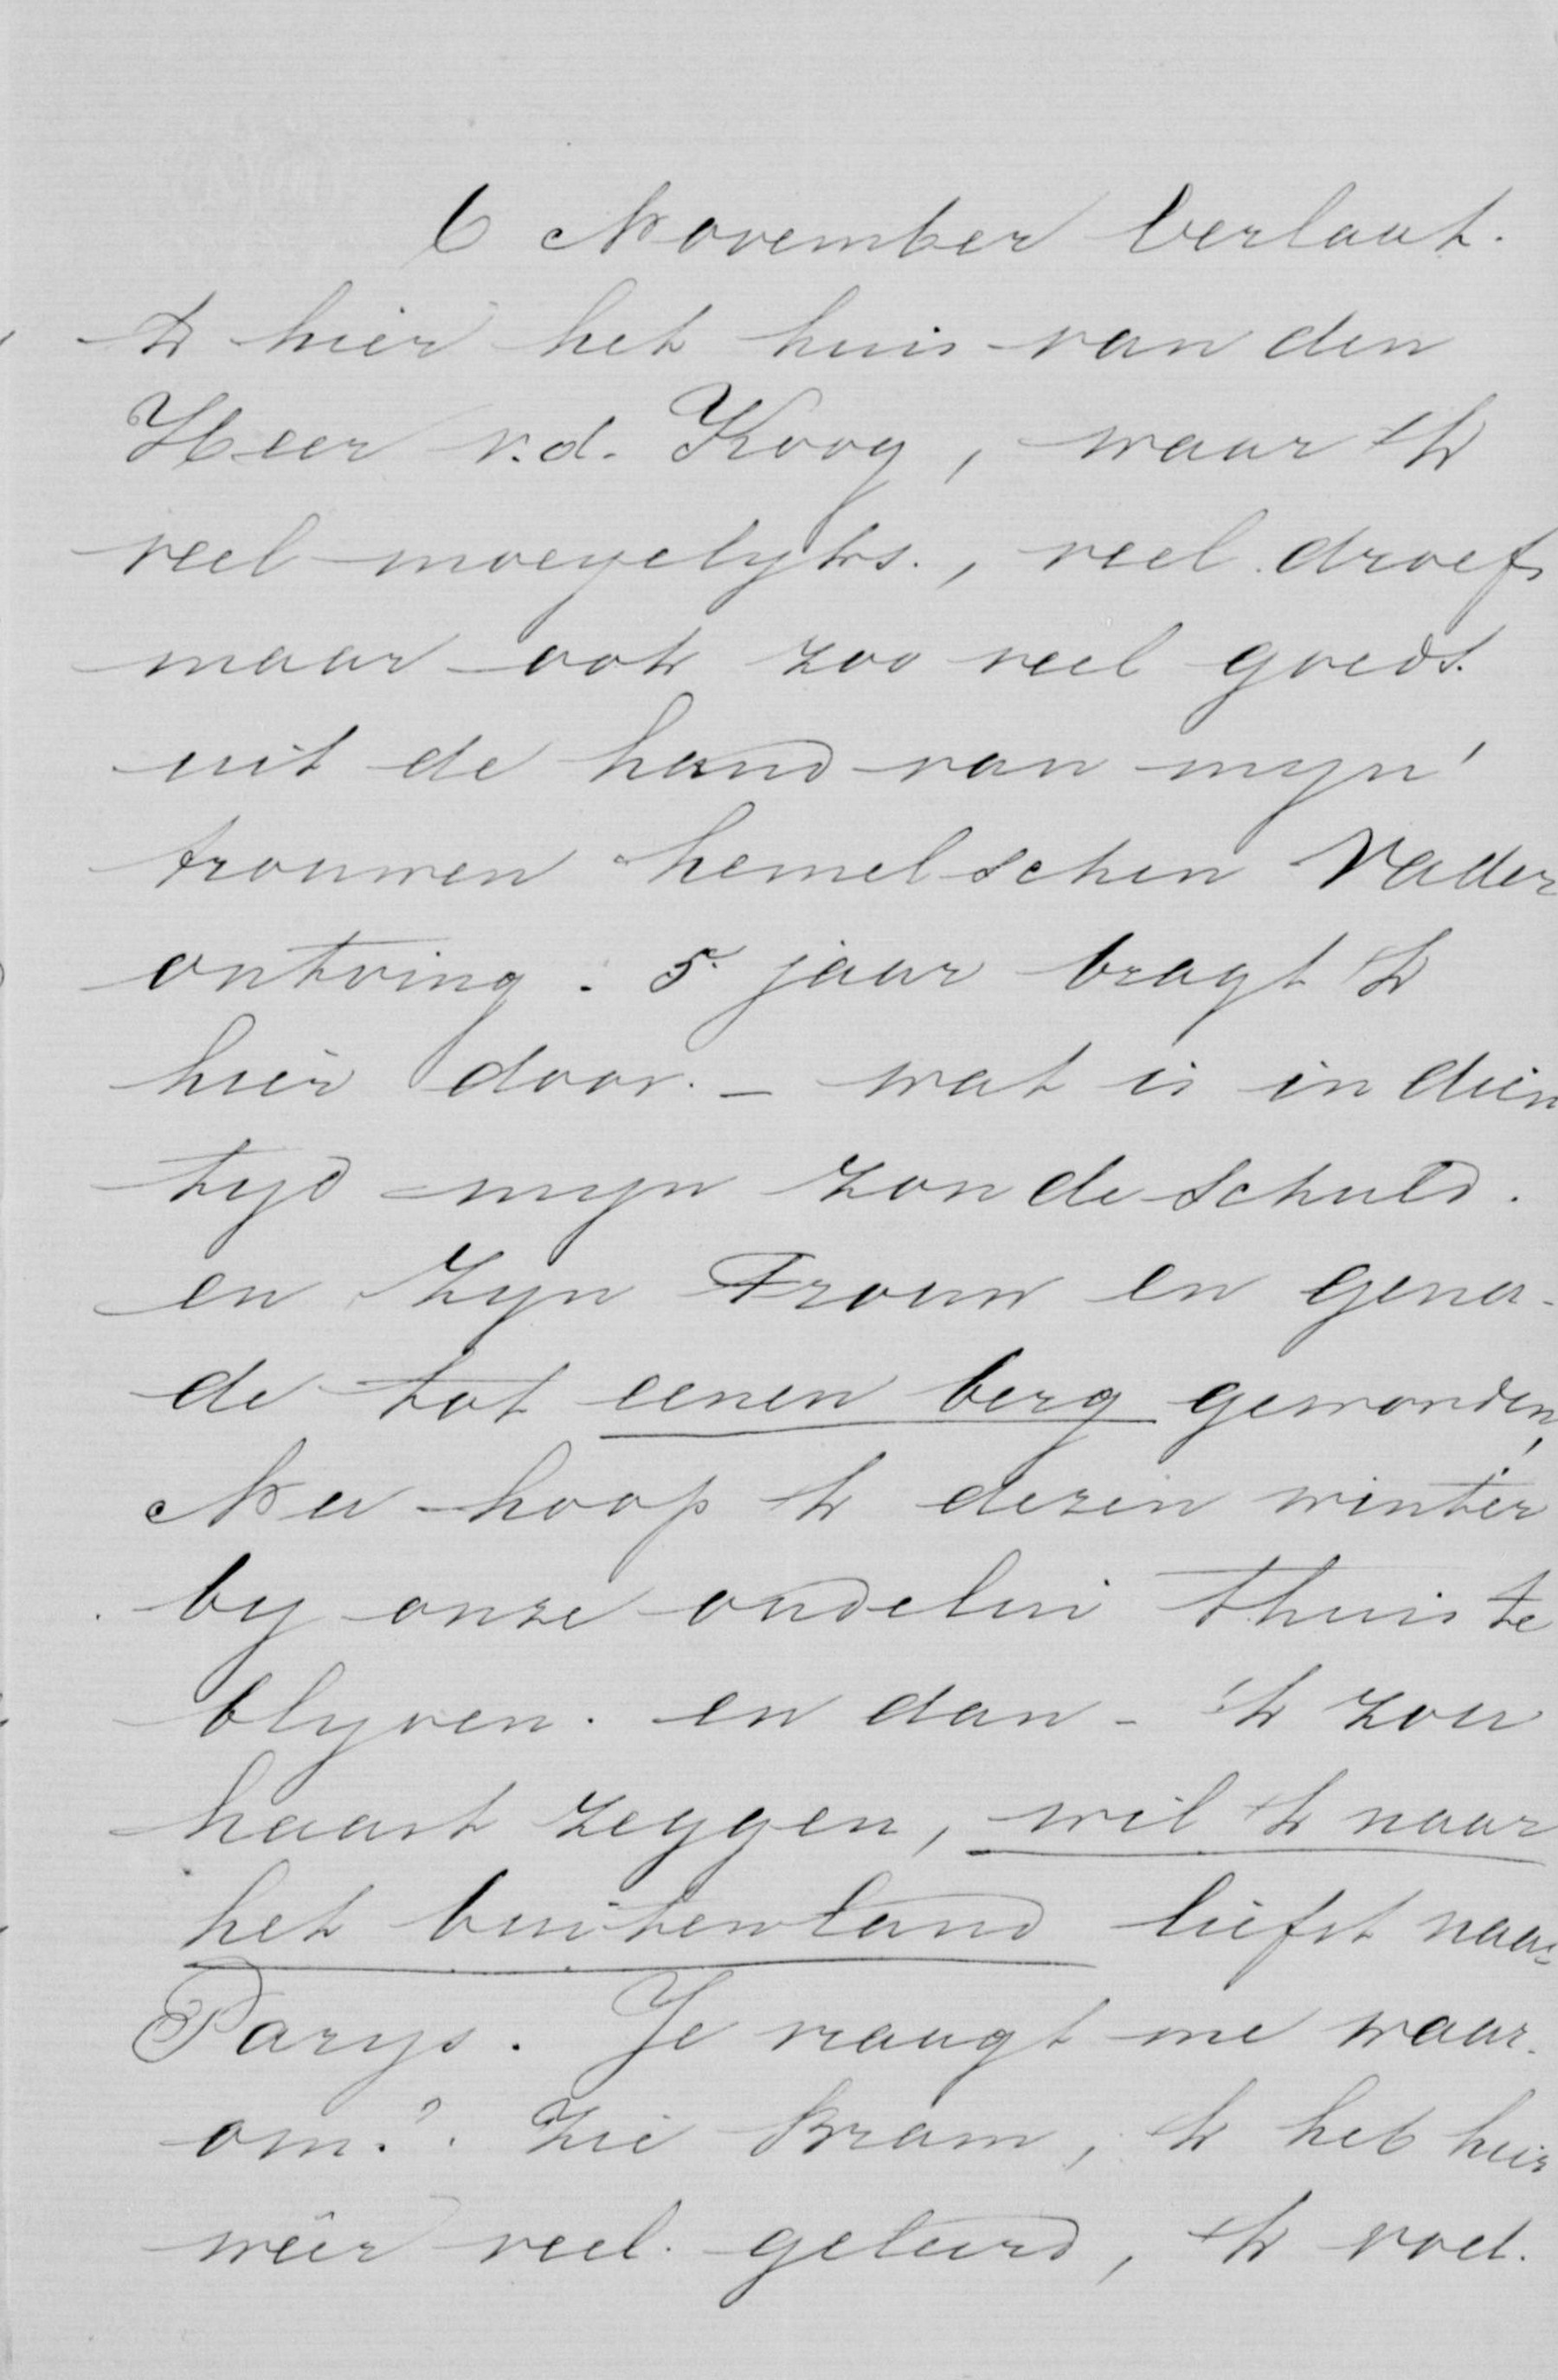 6 November verlaat.
ik hier het huis van den
Heer v.d. Koog, waar ik
veel moeyelyks., veel droefs
maar ook zoo veel goeds.
uit de hand van myn'
trouwen hemelschen Vader
ontving. 5 jaar bragt ik
hier door. - wat is in dien
tyd myn zondeschuld.
en Zyn Trouw en gena-
de tot eenen berg geworden,
Nu hoop ik dezen winter
by onze oudelui thuis te
blyven. en dan - ik zou
haast zeggen, wil ik naar
het buitenland liefst naar
Parys. Je vraagt me waar-
om?. Zie Bram, ik heb hier
wéér veel geleerd, ik voel.